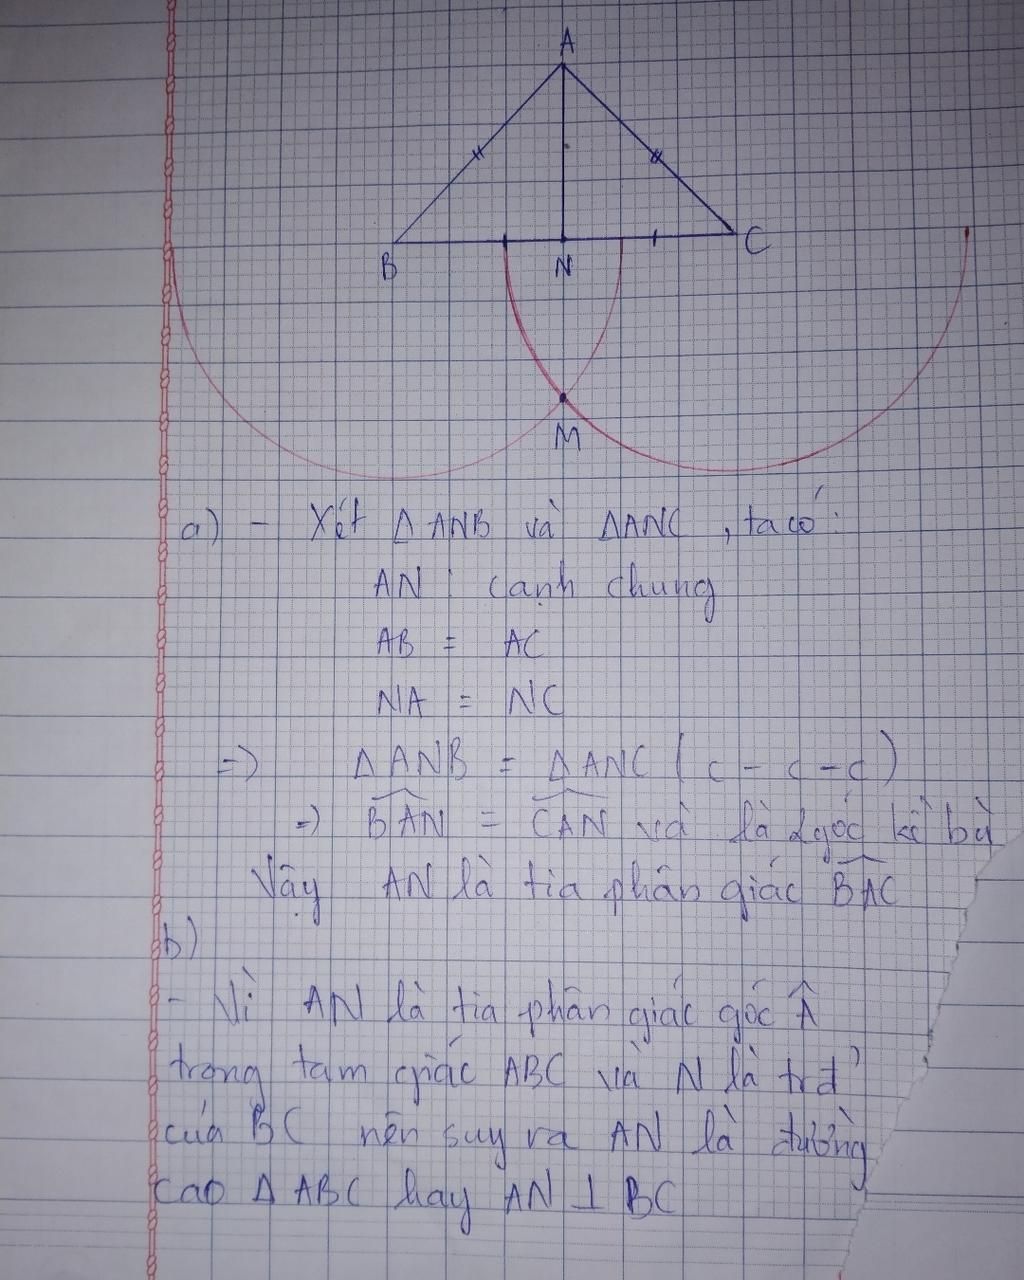 A
B
N
C
M
a) - Xét Δ ANB và ΔANC, ta có:
AN : cạnh chung
AB = AC
NA = NC
=) Δ ANB = Δ ANC ( c - c - c )
=) \widehat{BAN} = \widehat{CAN} và là 2 góc kề bù
Vậy AN là tia phân giác \widehat{BAC}
b)
- Vì AN là tia phân giác góc Â
trong tam giác ABC và N là trđ'
của BC nên suy ra AN là đường
cao Δ ABC hay AN ⊥ BC